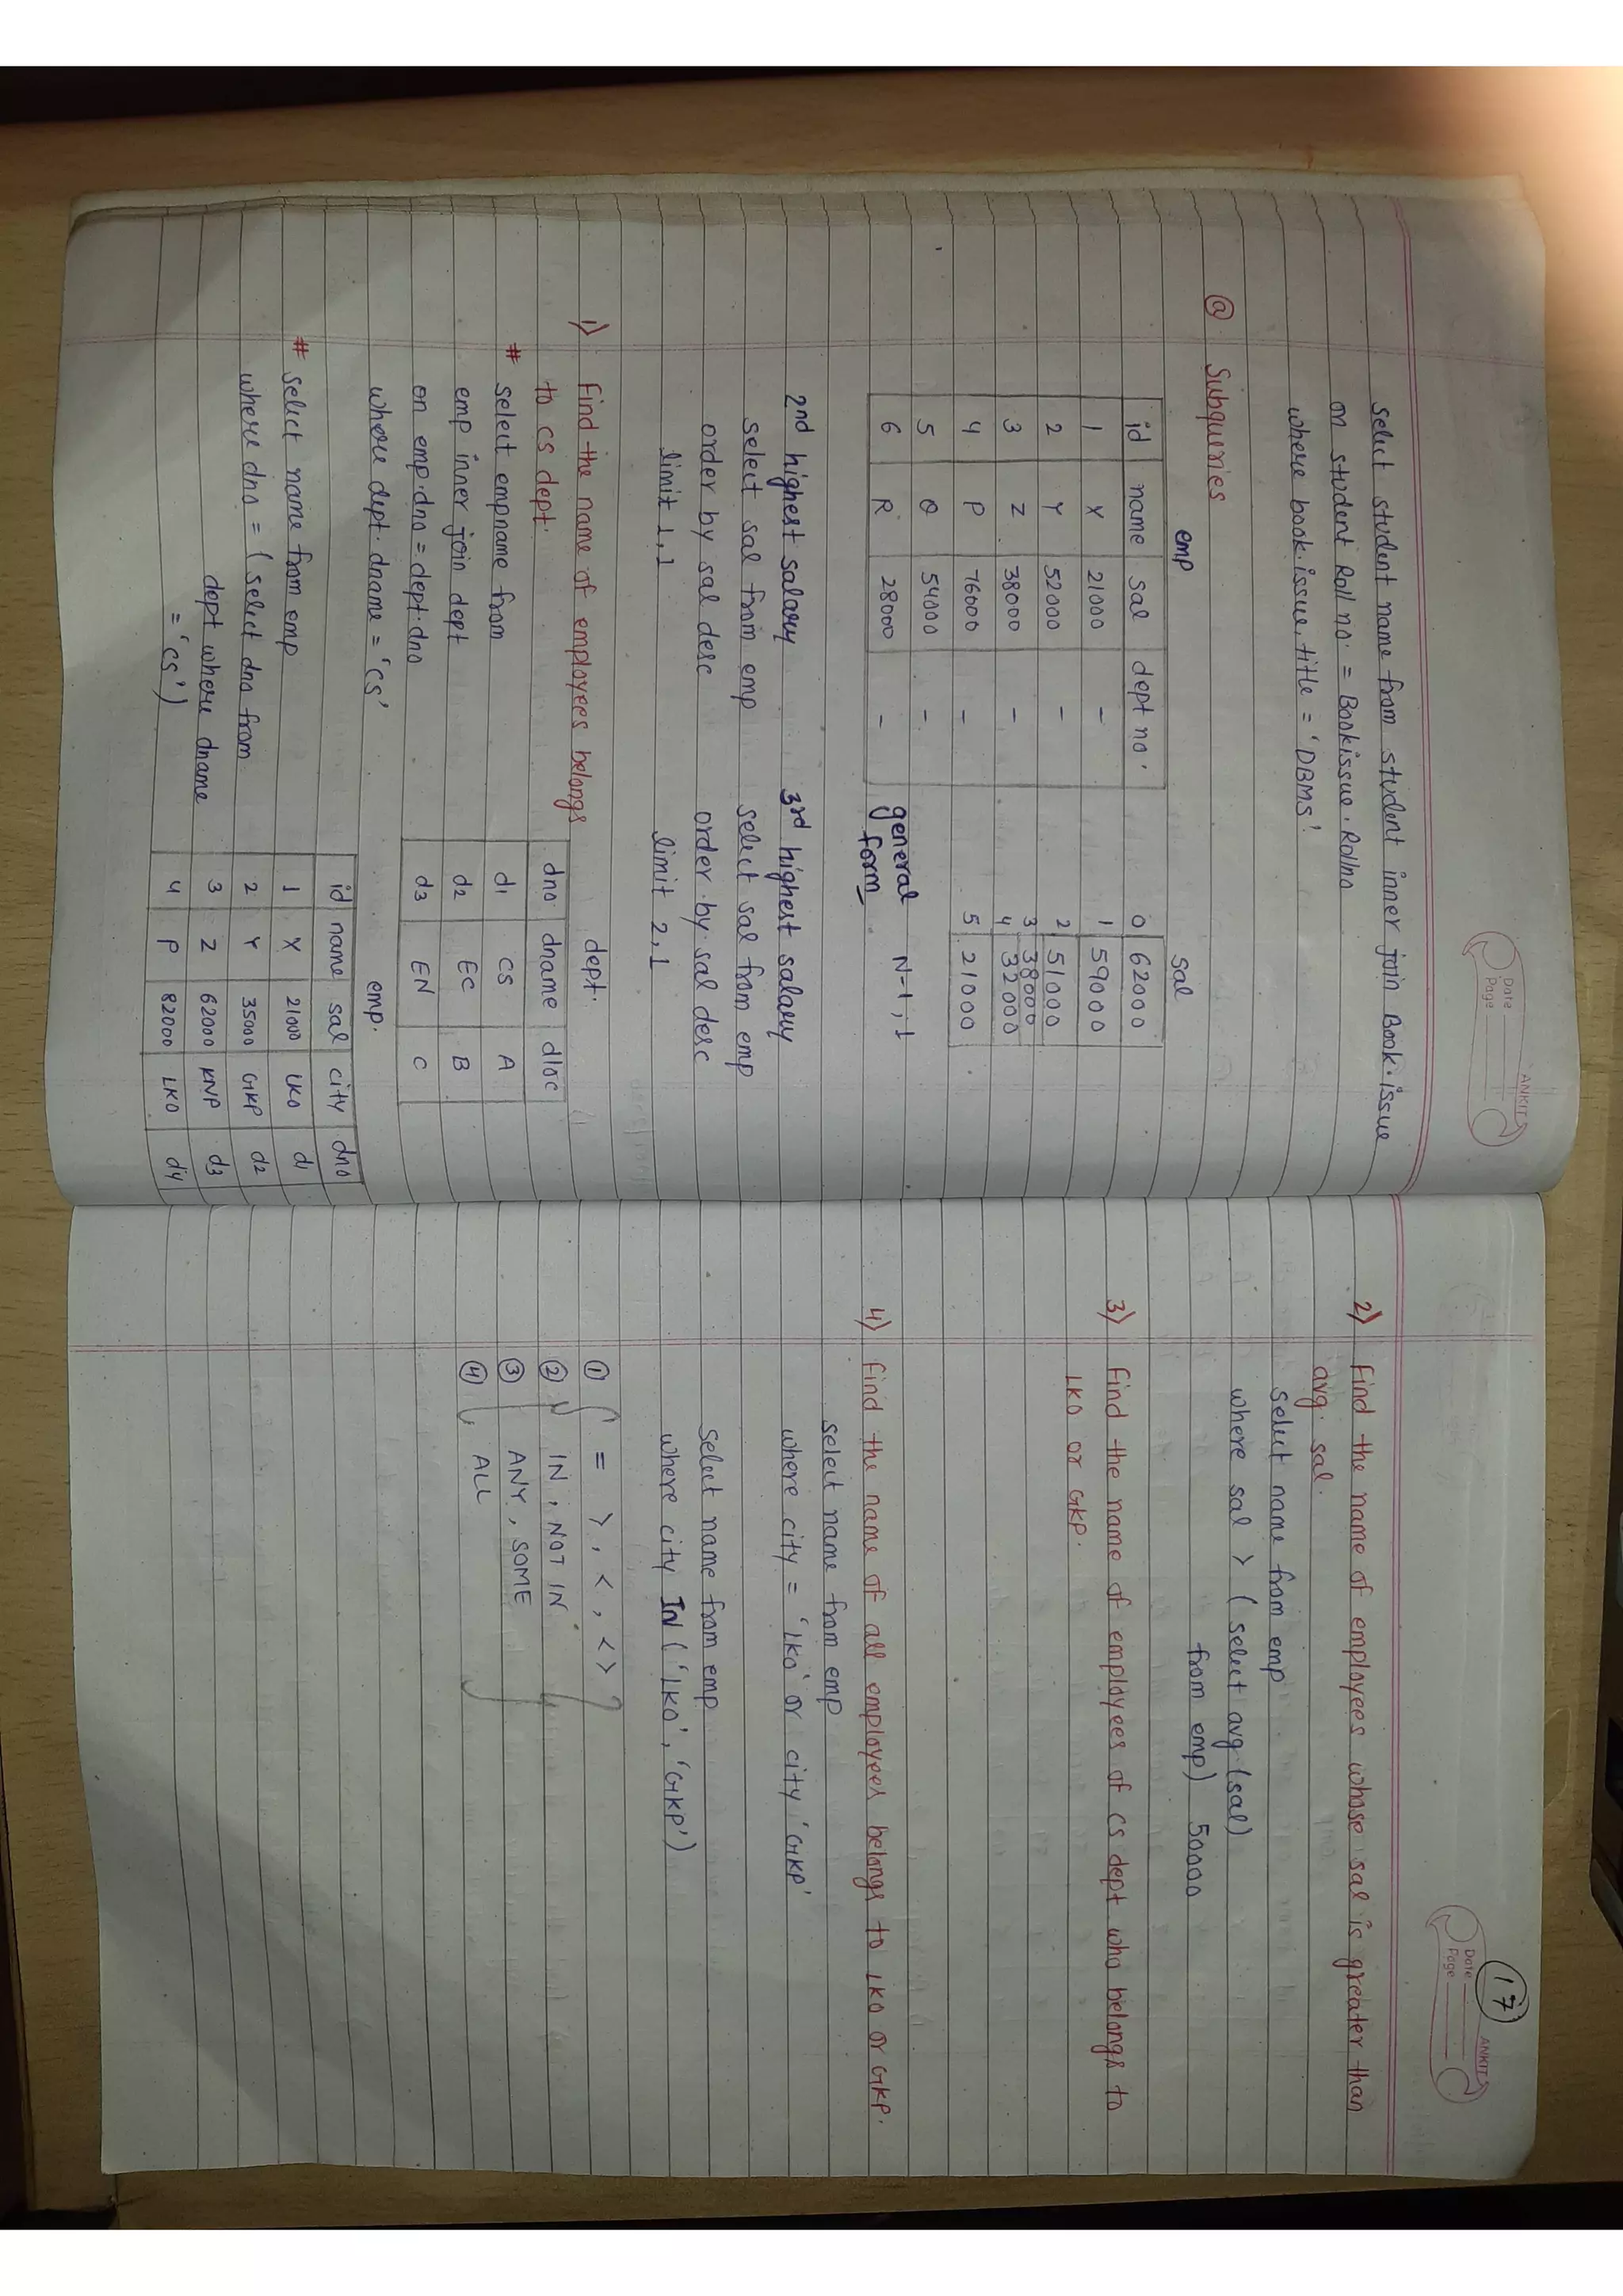 Date
Page
ANKIT
select student name from student inner join Book.issue
on student Roll no. = Bookissue.Rollno
where book.issue.title = 'DBMS'.
@ Subqueries
emp
id name sal dept no.
1 X 21000 -
2 Y 52000 -
3 Z 38000 -
4 P 76000 -
5 Q 54000 -
6 R 28000 -
sal
0 62000
1 59000
2 51000
3 38000
4 32000
5 21000
general form N-1, 1
2nd highest salary
select sal from emp
order by sal desc
limit 1,1
3rd highest salary
select sal from emp
order by sal desc
limit 2,1
1) Find the name of employees belongs
to cs dept.
# select empname from
emp inner join dept
on emp.dno = dept.dno
where dept.dname = 'cs'
dept.
dno dname dloc
d1 CS A
d2 EC B
d3 EN C
# select name from emp
where dno = (select dno from
dept where dname
= 'cs')
emp.
id name sal city dno
1 X 21000 LKO d1
2 Y 3500 GKP d2
3 Z 62000 KNP d3
4 P 82000 LKO d4
17
Date
Page
ANKIT
2) Find the name of employees whose sal is greater than
avg. sal.
select name from emp
where sal > (select avg(sal)
from emp) 50000
3) Find the name of employees of cs dept who belongs to
LKO or GKP.
4) Find the name of all employees belongs to LKO or GKP.
select name from emp
where city = 'LKO' or city 'GKP'
select name from emp
where city IN ('LKO', 'GKP')
① = >, <, <>
② IN, NOT IN
③ ANY, SOME
④ ALL